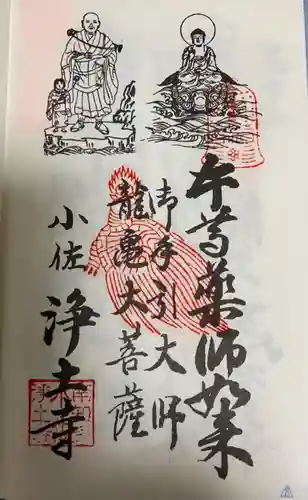 午尊薬師如来
御手引大師
龍亀大菩薩
小佐
浄土寺